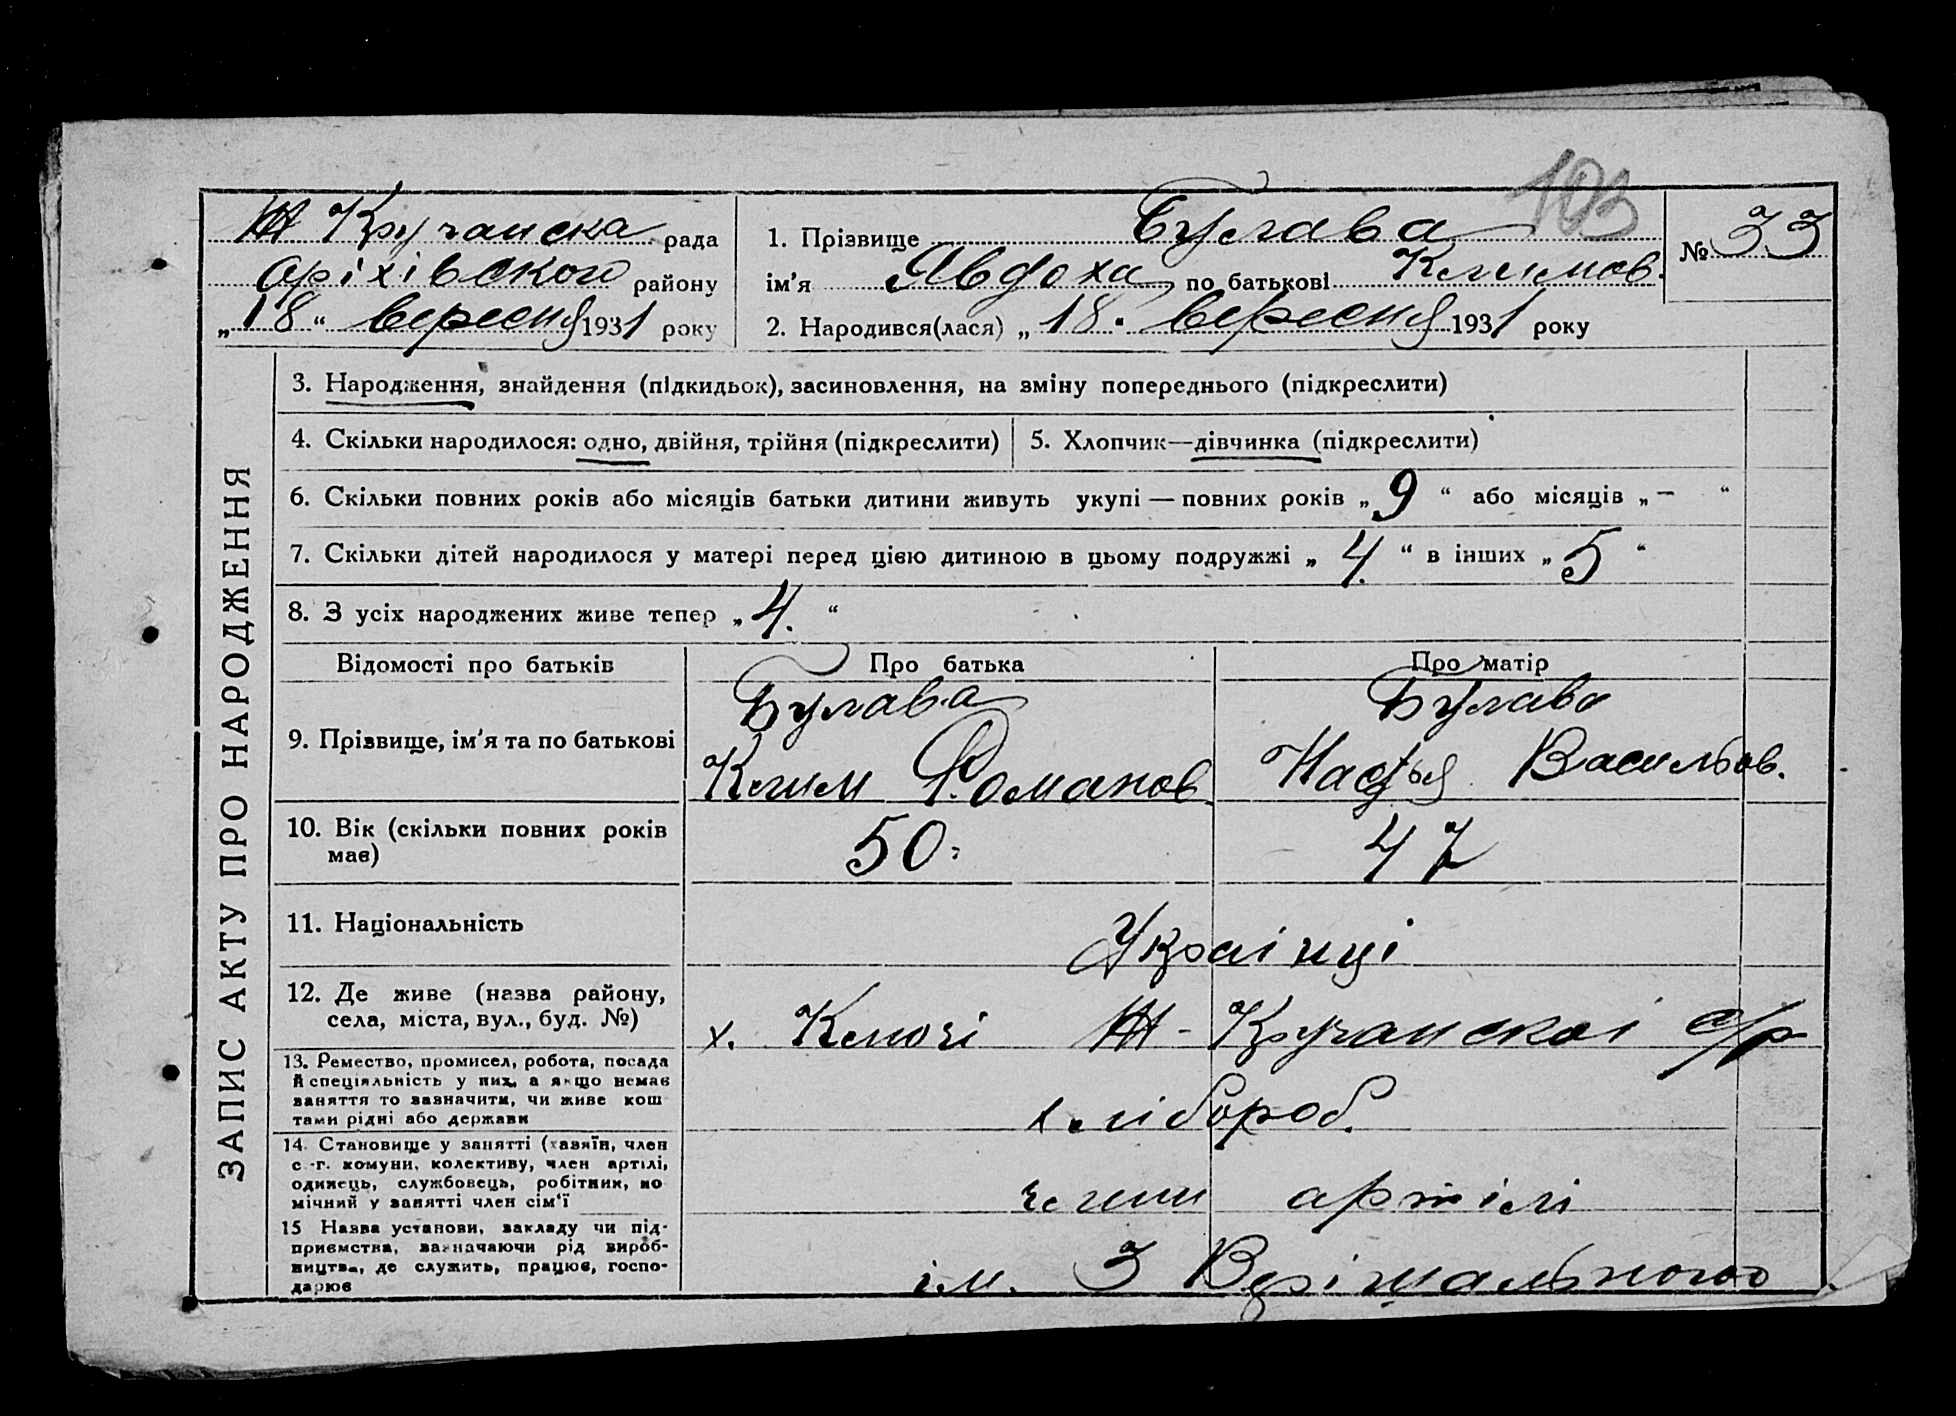 103
Ж Кручанска рада
Оріхівского району
„18“ вересня 1931 року
1. Прізвище Булава
ім'я Явдоха по батькові Климов.
2. Народився(лася) „18. вересня 1931 року
№ 33
ЗАПИС АКТУ ПРО НАРОДЖЕННЯ
3. Народження, знайдення (підкидьок), засиновлення, на зміну попереднього (підкреслити)
4. Скільки народилося: одно, двійня, трійня (підкреслити)
5. Хлопчик—дівчинка (підкреслити)
6. Скільки повних років або місяців батьки дитини живуть укупі — повних років „9“ або місяців „—“
7. Скільки дітей народилося у матері перед цією дитиною в цьому подружжі „4.“ в інших „5“
8. З усіх народжених живе тепер „4.“
Відомості про батьків
Про батька
Про матір
9. Прізвище, ім'я та по батькові
Булава
Клим Романов
Булава
Настья Васильов.
10. Вік (скільки повних років
має)
50
47
11. Національність
Украінці
12. Де живе (назва району,
села, міста, вул., буд. №)
х. Ключі Ж-Кручанскоі с/р
13. Ремество, промисел, робота, посада
й спеціяльність у них, а якщо немає
заняття то зазначити, чи живе кош
тами рідні або держави
хлібороб.
14. Становище у занятті (хазяїн, член
с.-г. комуни, колективу, член артілі,
одинець, службовець, робітник, по
мічний у занятті член сім'ї
члени артілі
15 Назва установи, закладу чи під-
приємства, зазначаючи рід вироб-
ництва, де служить, працює, госпо-
дарює
ім. 3 Верішального